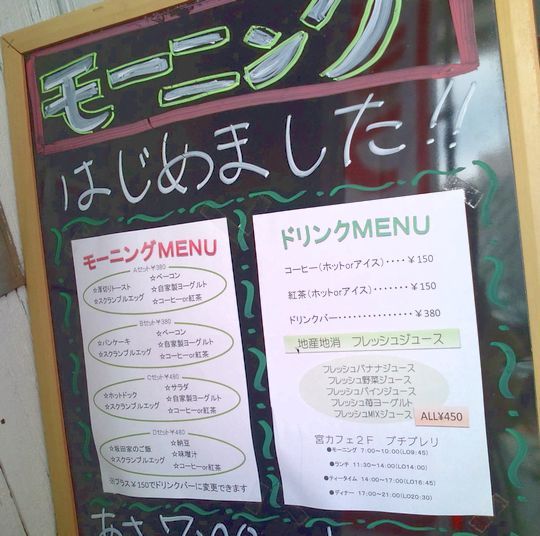 モーニング
はじめました!!
モーニングMENU
Aセット¥380
☆ベーコン
☆厚切りトースト ☆自家製ヨーグルト
☆スクランブルエッグ ☆コーヒーor紅茶
Bセット¥380
☆ベーコン
☆パンケーキ ☆自家製ヨーグルト
☆スクランブルエッグ ☆コーヒーor紅茶
Cセット¥480
☆サラダ
☆ホットドック ☆自家製ヨーグルト
☆スクランブルエッグ ☆コーヒーor紅茶
Dセット¥480
☆納豆
☆坂田家のご飯 ☆味噌汁
☆スクランブルエッグ ☆コーヒーor紅茶
※プラス¥150でドリンクバーに変更できます
ドリンクMENU
コーヒー(ホットorアイス)‥‥¥150
紅茶(ホットorアイス)‥‥‥¥150
ドリンクバー‥‥‥‥‥‥‥¥380
地産地消 フレッシュジュース
フレッシュバナナジュース
フレッシュ野菜ジュース
フレッシュパインジュース
フレッシュ苺ヨーグルト
フレッシュMIXジュース ALL¥450
宮カフェ2F プチプレリ
●モーニング 7:00~10:00(LO9:45)
●ランチ 11:30~14:00(LO14:00)
●ティータイム 14:00~17:00(LO16:45)
●ディナー 17:00~21:00(LO20:30)
あさ7:00